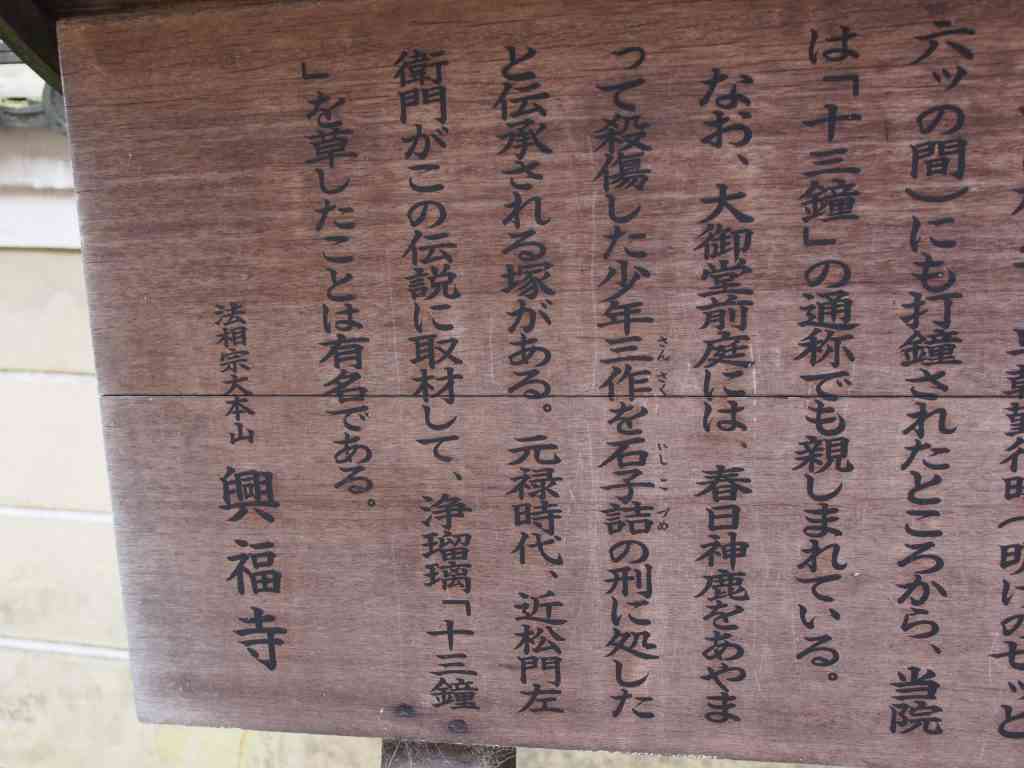 早朝勤行時(明けの七ッと
六ッの間)にも打鐘されたところから、当院
は「十三鐘」の通称でも親しまれている。
なお、大御堂前庭には、春日神鹿をあやま
って殺傷した少年三作を石子詰の刑に処した
さんさく いしこづめ
と伝承される塚がある。元禄時代、近松門左
衛門がこの伝説に取材して、浄瑠璃「十三鐘
」を草したことは有名である。
法相宗大本山 興福寺